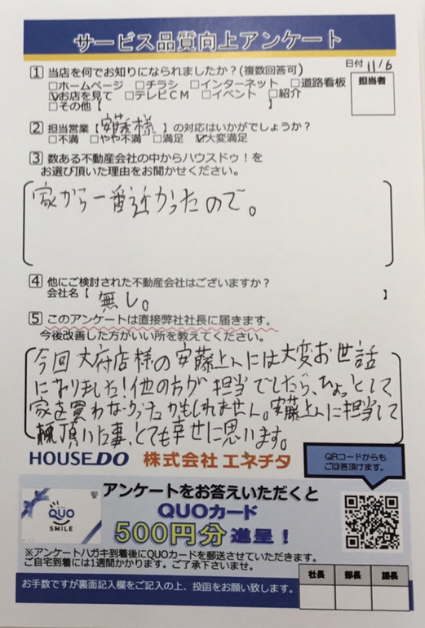 サービス品質向上アンケート
日付 11/6
担当者
1 当店を何でお知りになられましたか？(複数回答可)
□ホームページ □チラシ □インターネット □道路看板
☑お店を見て □テレビCM □イベント □紹介
□その他【 】
2 担当営業【安藤様】の対応はいかがでしょうか？
□不満 □やや不満 □満足 ☑大変満足
3 数ある不動産会社の中からハウスドゥ！を
お選び頂いた理由をお聞かせください。
家から一番近かったので。
4 他にご検討された不動産会社はございますか？
会社名【 無し。 】
5 このアンケートは直接弊社社長に届きます。
今後改善した方がいい所を教えてください。
今回大府店様の安藤さんには大変お世話
になりました！他の方が担当でしたら、ひょっとして
家を買わなかったかもしれません。安藤さんに担当して
頂いた事、とても幸せに思います。
HOUSE DO 株式会社 エネチタ
QRコードからも
ご回答頂けます。
アンケートをお答えいただくと
QUOカード
500円分 進呈！
QUO
SMILE
※アンケートハガキ到着後にQUOカードを郵送させていただきます。
ご自宅到着には1週間かかります。ご了承下さいませ。
お手数ですが裏面記入欄をご記入の上、投函をお願い致します。
社長 部長 課長